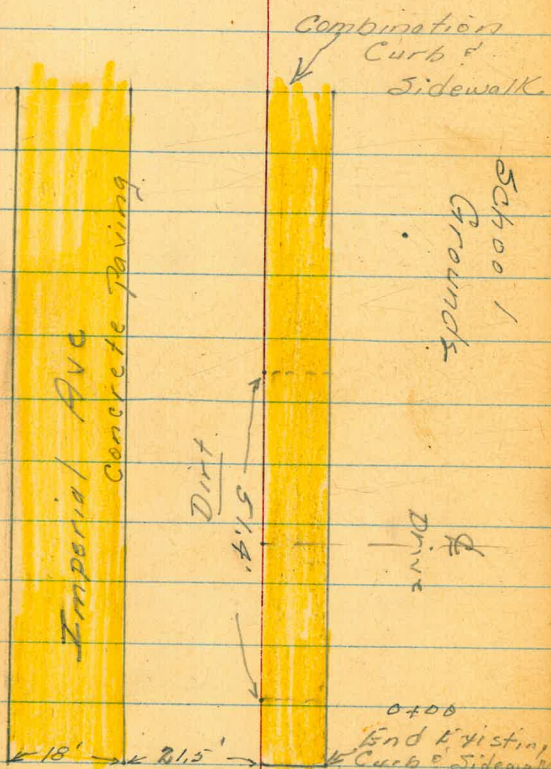 Combination
Curb &
Sidewalk
School
Grounds
Imperial Ave
Concrete Paving
Dirt
51.4'
℄
Drive
0+00
End Existing
Curb & Sidewalk
18'
21.5'